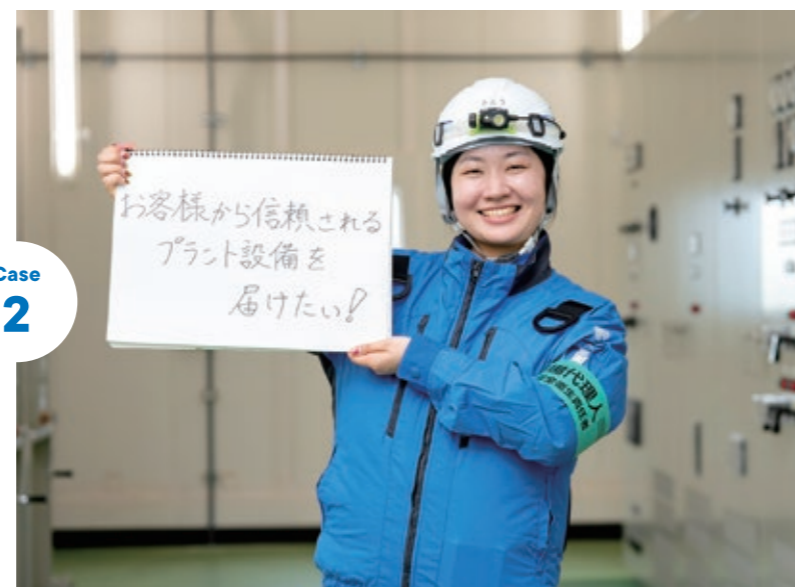 Case
2
お客様から信頼される
プラント設備を
届けたい!
代理人